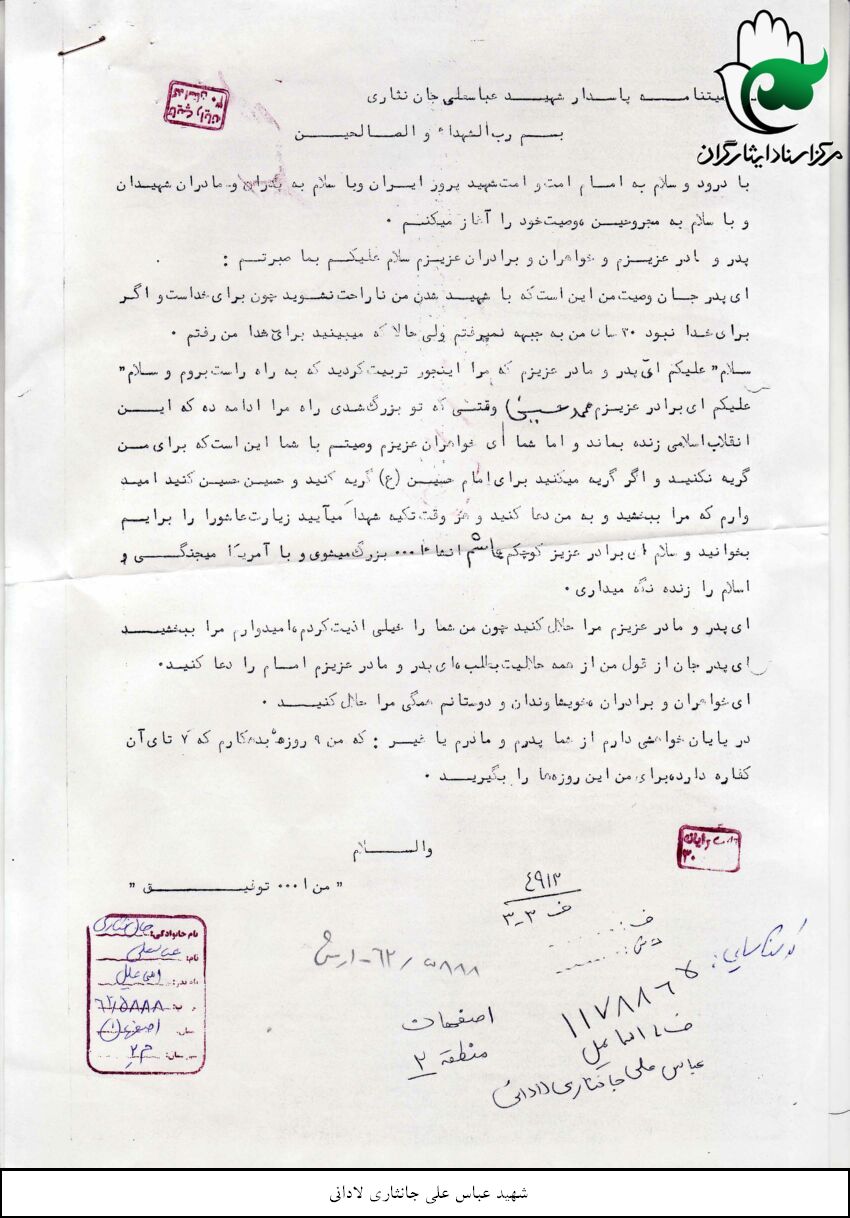 مرکز اسناد ایثارگران
وصیتنامه پاسدار شهید عباسعلی جان نثاری
بسم رب الشهداء و الصالحین
با درود و سلام به امام امت و امت شهید پرور ایران و با سلام به پدران و مادران شهیدان
و با سلام به مجروحین وصیت خود را آغاز میکنم .
پدر و مادر عزیزم و خواهران و برادران عزیزم سلام علیکم بما صبرتم :
ای پدر جان وصیت من این است که با شهید شدن من ناراحت نشوید چون برای خداست و اگر
برای خدا نبود ۳۰ سال من به جبهه نمیرفتم ولی حالا که میبینید برای خدا من رفتم .
سلام" علیکم ای پدر و مادر عزیزم که مرا اینجور تربیت کردید که به راه راست بروم و سلام"
علیکم ای برادر عزیزم محمد حسین) وقتی که تو بزرگ شدی راه مرا ادامه ده که این
انقلاب اسلامی زنده بماند و اما شما ای خواهران عزیزم وصیتم با شما این است که برای من
گریه نکنید و اگر گریه میکنید برای امام حسین (ع) گریه کنید و حسین حسین کنید امید
وارم که مرا ببخشید و به من دعا کنید و هر وقت تکیه شهدا میآیید زیارت عاشورا را برایم
بخوانید و سلام ای برادر عزیز کوچکم هاشم انشاء ا... بزرگ میشوی و با آمریکا میجنگی و
اسلام را زنده نگه میداری .
ای پدر و مادر عزیزم مرا حلال کنید چون من شما را خیلی اذیت کردم امیدوارم مرا ببخشید
ای پدر جان از قول من از همه حلالیت بطلب ای پدر و مادر عزیزم امام را دعا کنید .
ای خواهران و برادران خویشاوندان و دوستانم همگی مرا حلال کنید .
در پایان خواهشی دارم از شما پدرم و مادرم یا غیر : که من ۹ روزه بدهکارم که ۷ تای آن
کفاره دارد برای من این روزهها را بگیرید .
والسلام
" من ا... توفیق "
۴۹۱۲
ف ۳-۳
ف:
ش:
کد شناسایی:
۱۱۷۸۸۶۷
ف : اسماعیل
عباس علی جانثاری لادانی
۶۲/۵۸۸۸
اصفهان
منطقه ۲
نام خانوادگی: جان نثاری
نام: عباسعلی
نام پدر: اسماعیل
۶۲/۵۸۸۸
اصفهان (۱)
م ۲
شهید عباس علی جانثاری لادانی